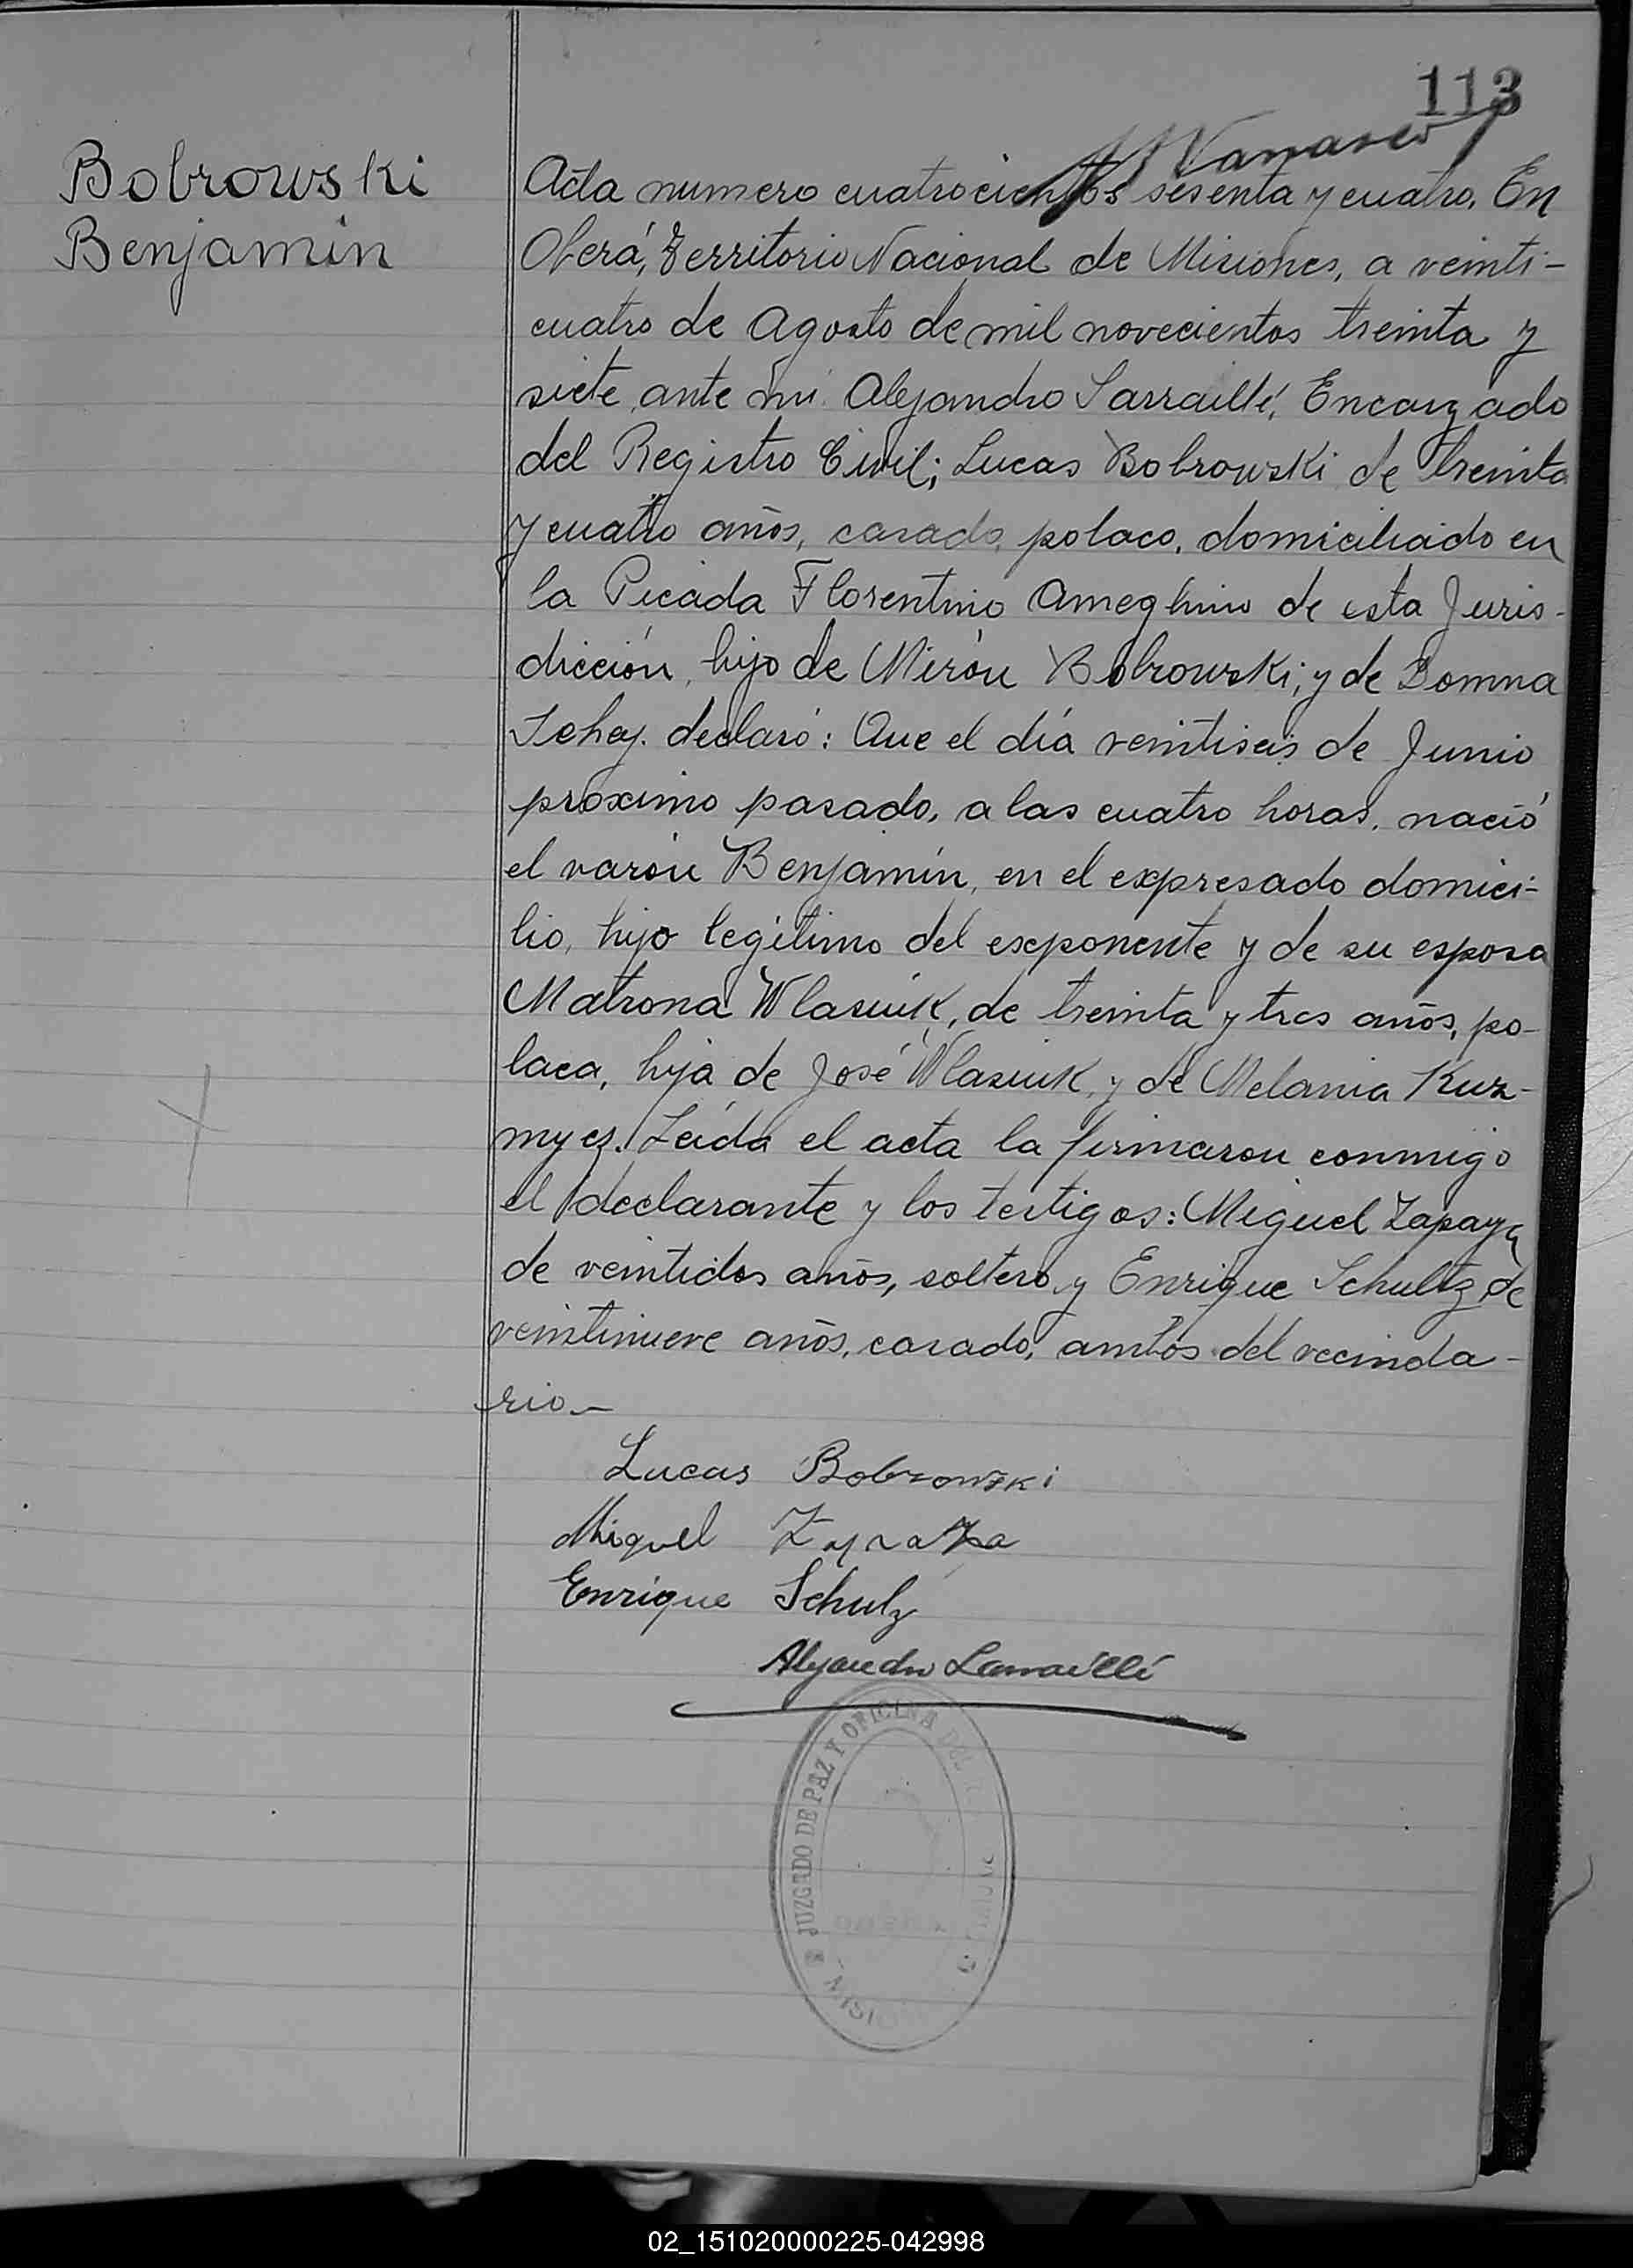 113
Bobrowski
Benjamin
Acta numero cuatrocientos sesenta y cuatro. En
Oberá, Territorio Nacional de Misiones, a veinti-
cuatro de Agosto de mil novecientos treinta y
siete, ante mi Alejandro Sarraillé, Encargado
del Registro Civil; Lucas Bobrowski de treinta
y cuatro años, casado, polaco, domiciliado en
la Picada Florentino Ameghino de esta Juris-
dicción, hijo de Mirón Bobrowski; y de Domna
declaró: Que el día veintiseis de Junio
próximo pasado, a las cuatro horas, nació
el varón Benjamín, en el expresado domici-
lio, hijo legítimo del exponente y de su esposa
Matrona Wlasiuk, de treinta y tres años, po-
laca, hija de José Wlasiuk, y de Melania Kuz-
mycz. Leída el acta la firmaron conmigo
el declarante y los testigos: Miguel Zapaya
de veintidos años, soltero y Enrique Schultz de
veintinueve años, casado, ambos del vecinda-
rio.-
Lucas Bobrowski
Miguel
Enrique Schulz
Alejandro Sarraillé
JUZGADO DE PAZ Y OFICINA DEL
02_151020000225-042998